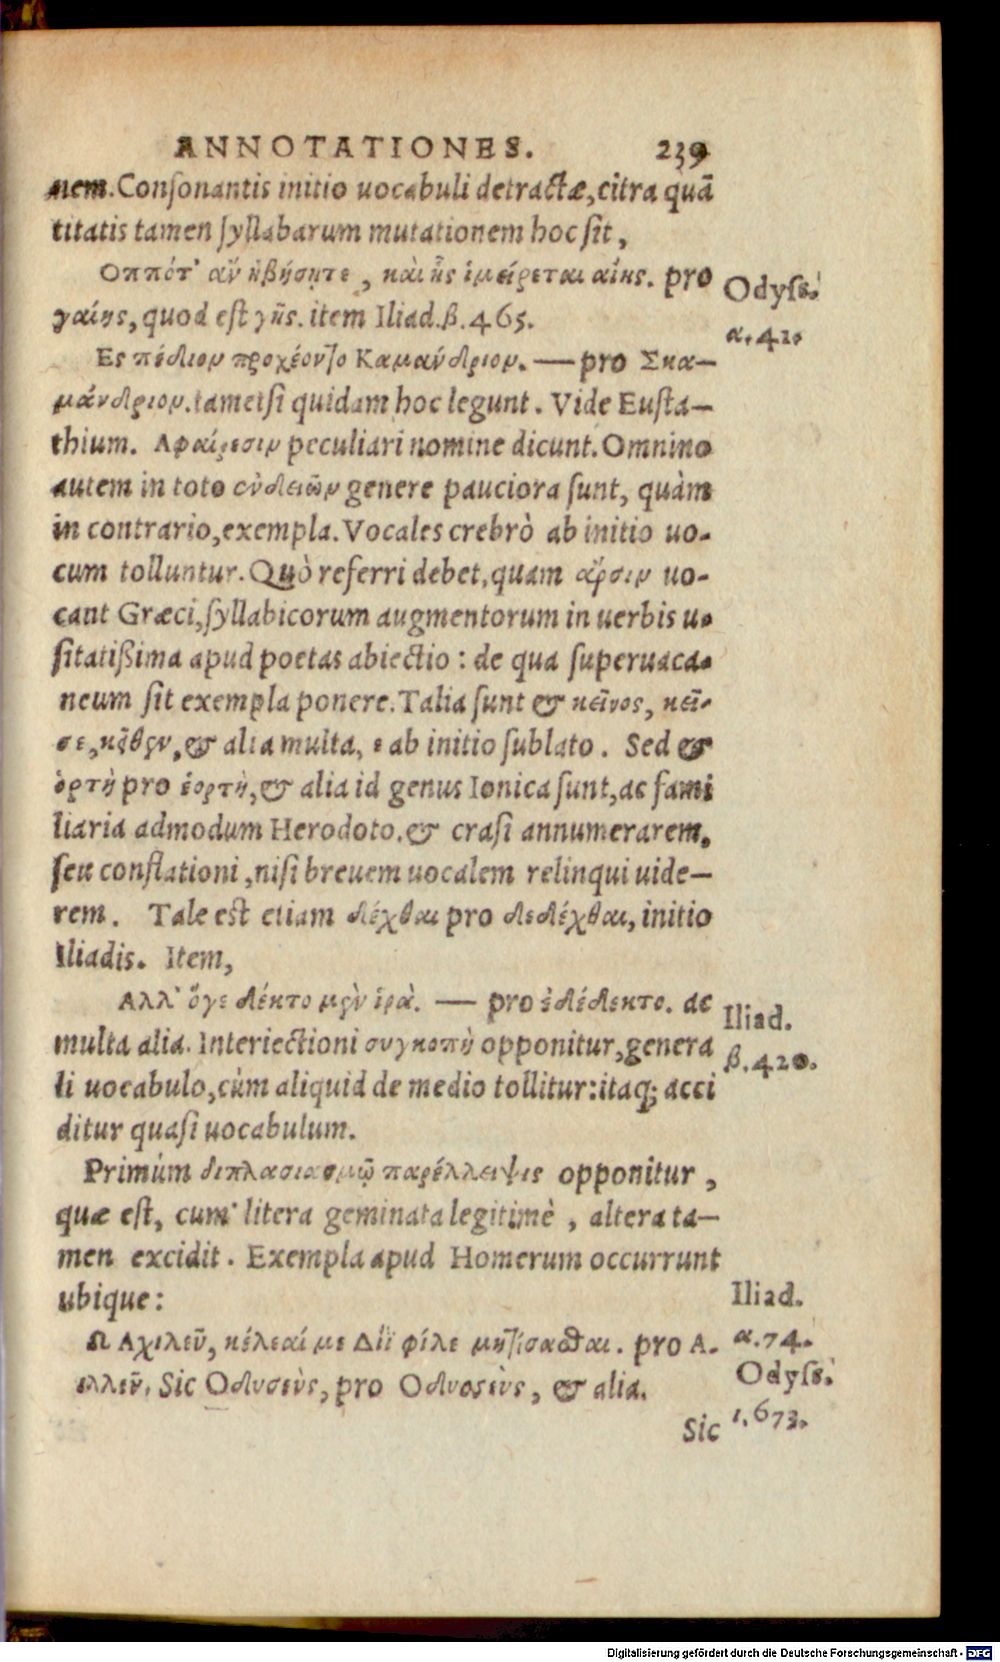 ANNOTATIONES. 239
nem. Conſonantis initio uocabuli detractæ, citra quā
titatis tamen ſyllabarum mutationem hoc ſit,
Οππότ' ἂν ἡβήσητε, καὶ ἧς ἱμείρεται αἴης. pro
Odyſſ.
γαίης, quod eſt γῆς. item Iliad. β. 465.
α. 41.
Ες πέδιον προχέοντο Καμάνδριον. — pro Σκα—
μάνδριον. tametſi quidam hoc legunt. Vide Euſta—
thium. Αφαίρεσιν peculiari nomine dicunt. Omnino
autem in toto ἐνδειῶν genere pauciora ſunt, quàm
in contrario, exempla. Vocales crebrò ab initio uo-
cum tolluntur. Quò referri debet, quam ἄρσιν uo-
cant Græci, ſyllabicorum augmentorum in uerbis u-
ſitatißima apud poetas abiectio: de qua ſuperuaca-
neum ſit exempla ponere. Talia ſunt & κεῖνος, κεῖ-
σε, κεῖθεν, & alia multa, ε ab initio ſublato. Sed &
ὁρτὴ pro ἑορτὴ, & alia id genus Ionica ſunt, ac fami
liaria admodum Herodoto. & craſi annumerarem,
ſeu conflationi, niſi breuem uocalem relinqui uide—
rem. Tale est etiam δέχθαι pro δεδέχθαι, initio
Iliadis. Item,
Αλλ' ὅγε δέκτο μὲν ἱρὰ. — pro ἐδέδεκτο. ac
Iliad.
multa alia. Interiectioni συγκοπὴ opponitur, genera
β. 420.
li uocabulo, cùm aliquid de medio tollitur: itaq; acci
ditur quaſi uocabulum.
Primùm διπλασιασμῷ παρέλλειψις opponitur,
quæ eſt, cum litera geminata legitimè, altera ta—
men excidit. Exempla apud Homerum occurrunt
ubique:
Iliad.
Ω Αχιλεῦ, κέλεαί με Διῒ φίλε μυθήσασθαι. pro Α-
α. 74.
χιλλεῦ. Sic Οδυσεὺς, pro Οδυσσεὺς, & alia.
Odyſſ.
ι. 673.
Sic
Digitalisierung gefördert durch die Deutsche Forschungsgemeinschaft - DFG